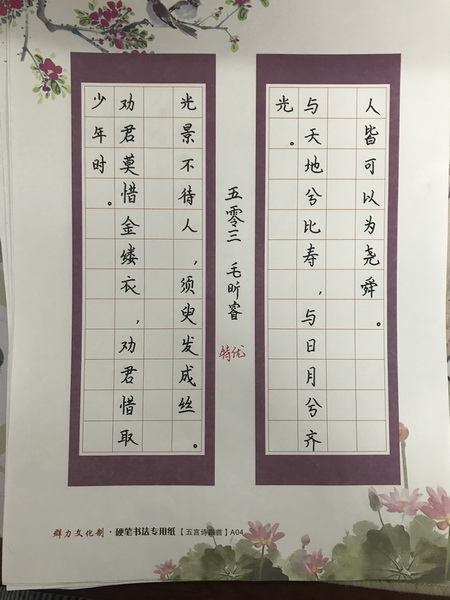 人皆可以为尧舜。
与天地兮比寿，与日月兮齐
光。
五零三 毛昕睿
特优
光景不待人，须臾发成丝。
劝君莫惜金缕衣，劝君惜取
少年时。
群力文化制·硬笔书法专用纸【五言诗四首】A04